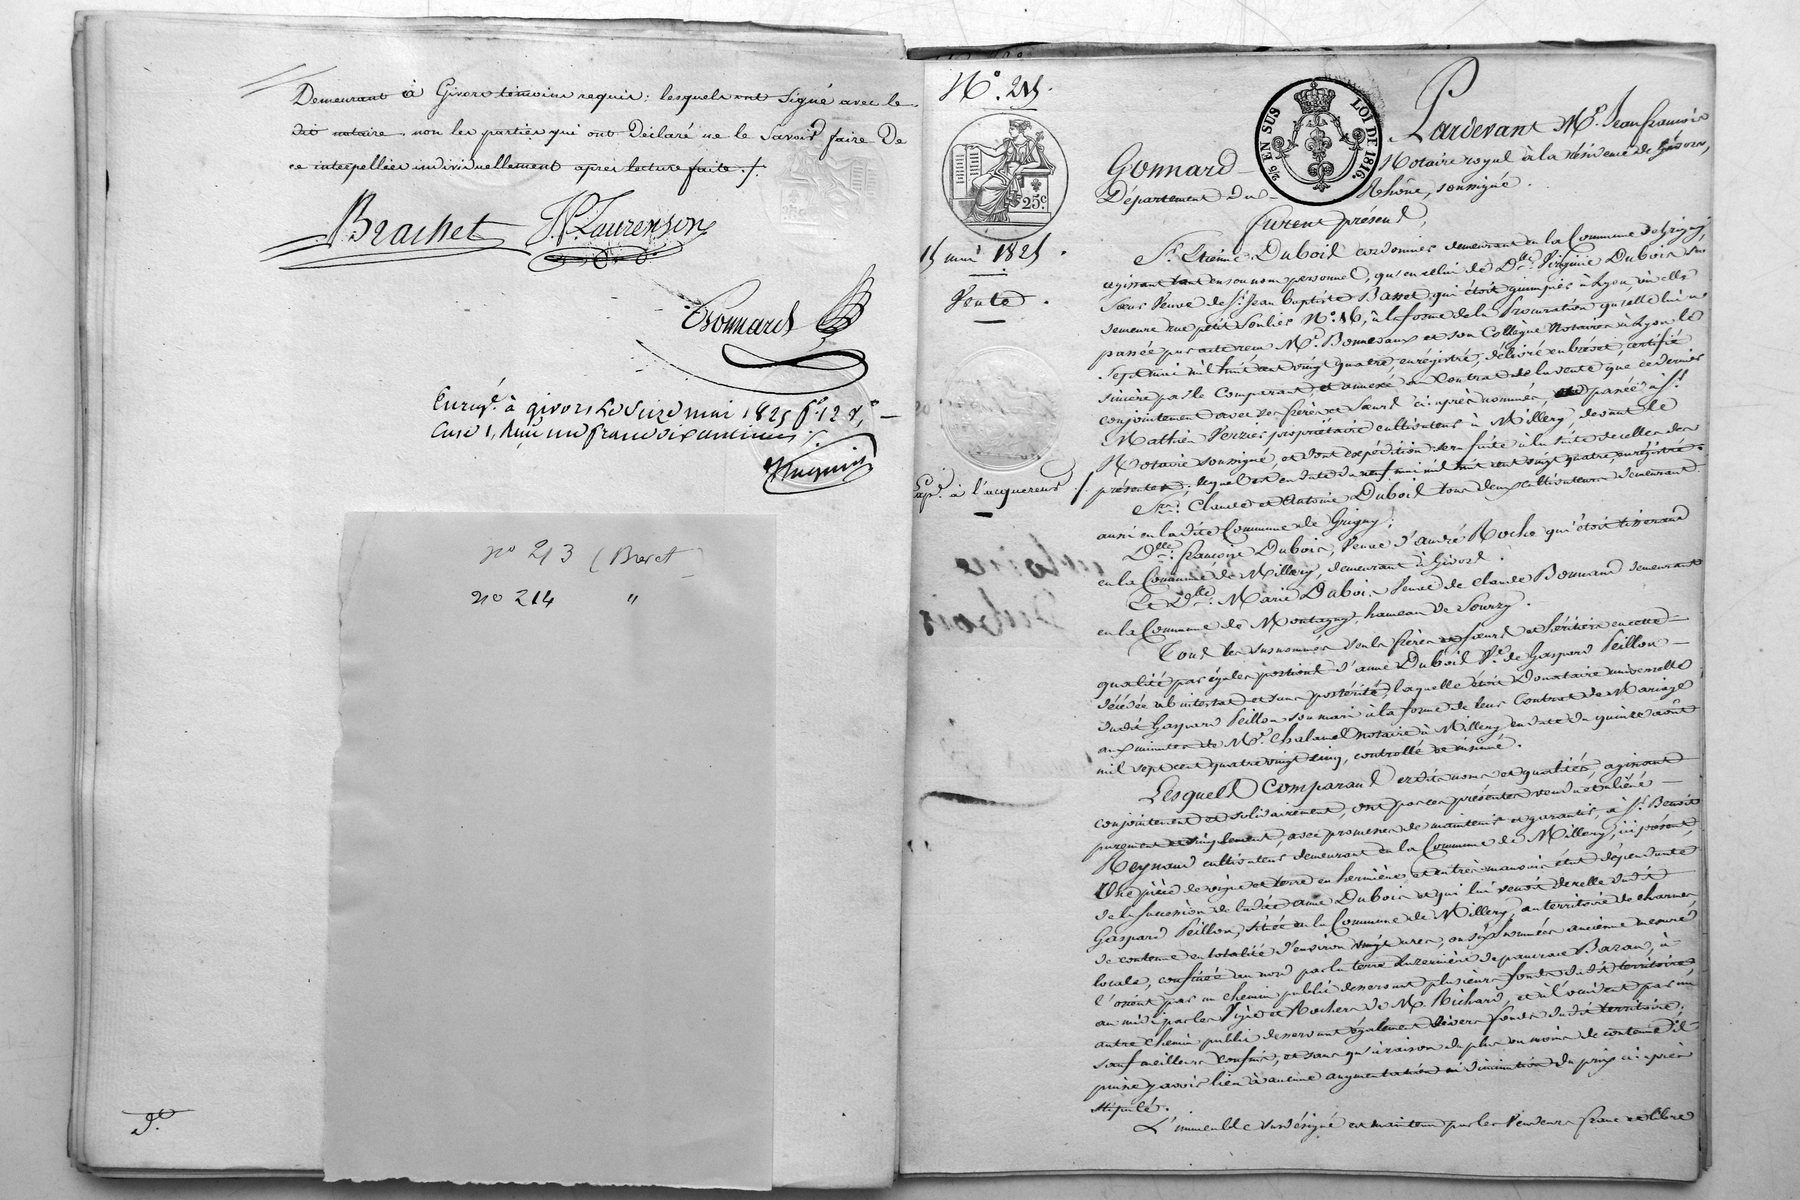 Demeurant à Givors témoins requis; lesquels ont signé avec le
dit notaire, non les parties qui ont Déclaré ne le savoir faire De
ce interpellées individuellement après lecture faite ./.
Brachet
Laurenson
Gonnard
Enreg.é à givors Le Seize mai 1825 f.o 12 r,o
Case 1, Reçu un franc dix centimes ./.
n° 213 (Brevet)
n° 214 "
N.o 215.
25 EN SUS
LOI DE 1816.
25c.
15 mai 1825.
Vente.
Exp.on à l'acquereur
Pardevant M.e Jean françois
Gonnard Notaire royal à la résidence de Givors,
Département Du Rhône, soussigné.
furent présens
S.r Etienne Dubois cordonnier demeurant en la Commune de Grigny,
agissant tant en son nom personnel, qu'en celui de D.lle Virginie Dubois sa
sœur Veuve de S.r Jean baptiste Basset, qui étoit guimpier à Lyon, où elle
demeure rue petit Soulier N.o 16, à la forme de la Procuration qu'elle lui a
passée par acte reçu M.e Bonnevaux et son Collègue Notaires à Lyon le
sept mai mil huit cent vingt quatre, enrégistré, délivré en brévet, certifié
sincère par le Comparant, et annexé au Contrat de la vente que ce dernier
conjointement avec ses frères et Sœurs ci-après nommés, passée à S.r
Mathieu Verzier propriétaire cultivateur à Millery, devant le
Notaire soussigné, et dont expédition sera faite à la suite de celles des
présentes; lequel est en date du neuf mai mil huit cent vingt quatre, enrégistré.
S.rs Claude et Antoine Dubois tous deux cultivateurs demeurant
aussi en la dite Commune de Grigny;
D.lle françoise Dubois, Veuve d'andré Roche qui étoit tisserand
en la Commune de Millery, demeurant à Givors.
Et D.lle Marie Dubois Veuve de Claude Bonnand demeurant
en la Commune de Montagny, hameau de Sourzy.
Tous les susnommés seuls frères et sœurs et héritiers en cette
qualité par égales portions d'anne Dubois V.e de Gaspard Peillon
décédée ab intestat et sans postérité, laquelle étoit Donataire universelle
dudit Gaspard Peillon son mari à la forme de leur Contrat de Mariage
aux minutes de M.e Chalanel notaire à Millery en date du quinze août
mil sept cent quatre vingt cinq, controllé et insinué.
Lesquels Comparans esdits noms et qualités, agissant
conjointement et solidairement, ont par ces présentes vendu et aliéné
purement et simplement, avec promesse de maintenir et garantir, à S.r Benoit
Reynaud cultivateur demeurant en la Commune de Millery, ici présent,
Une pièce de vigne et terre en hermière et en très mauvais état dépendante
de la succession de ladite anne Dubois et qui lui venoit de celle dudit
Gaspard Peillon, située en la Commune de Millery, au territoire de charmes
de contenue en totalité d'environ vingt ares, ou six hommées ancienne mesure
locale, confinée au nord par la terre Luzernière de pancrace Bazan, à
l'orient par un chemin public desservant plusieurs fonds dudit territoire,
au midi par les Vigne et Rochers de M. Richard, et à l'occident par un
autre chemin public desservant également divers fonds dudit territoire;
sauf meilleurs confins, et sans qu'à raison du plus ou moins de contenue il
puisse y avoir lieu à aucune augmentation ni diminution du prix ci-après
stipulé.
L'immeuble susdésigné est maintenu par les Vendeurs franc et libre